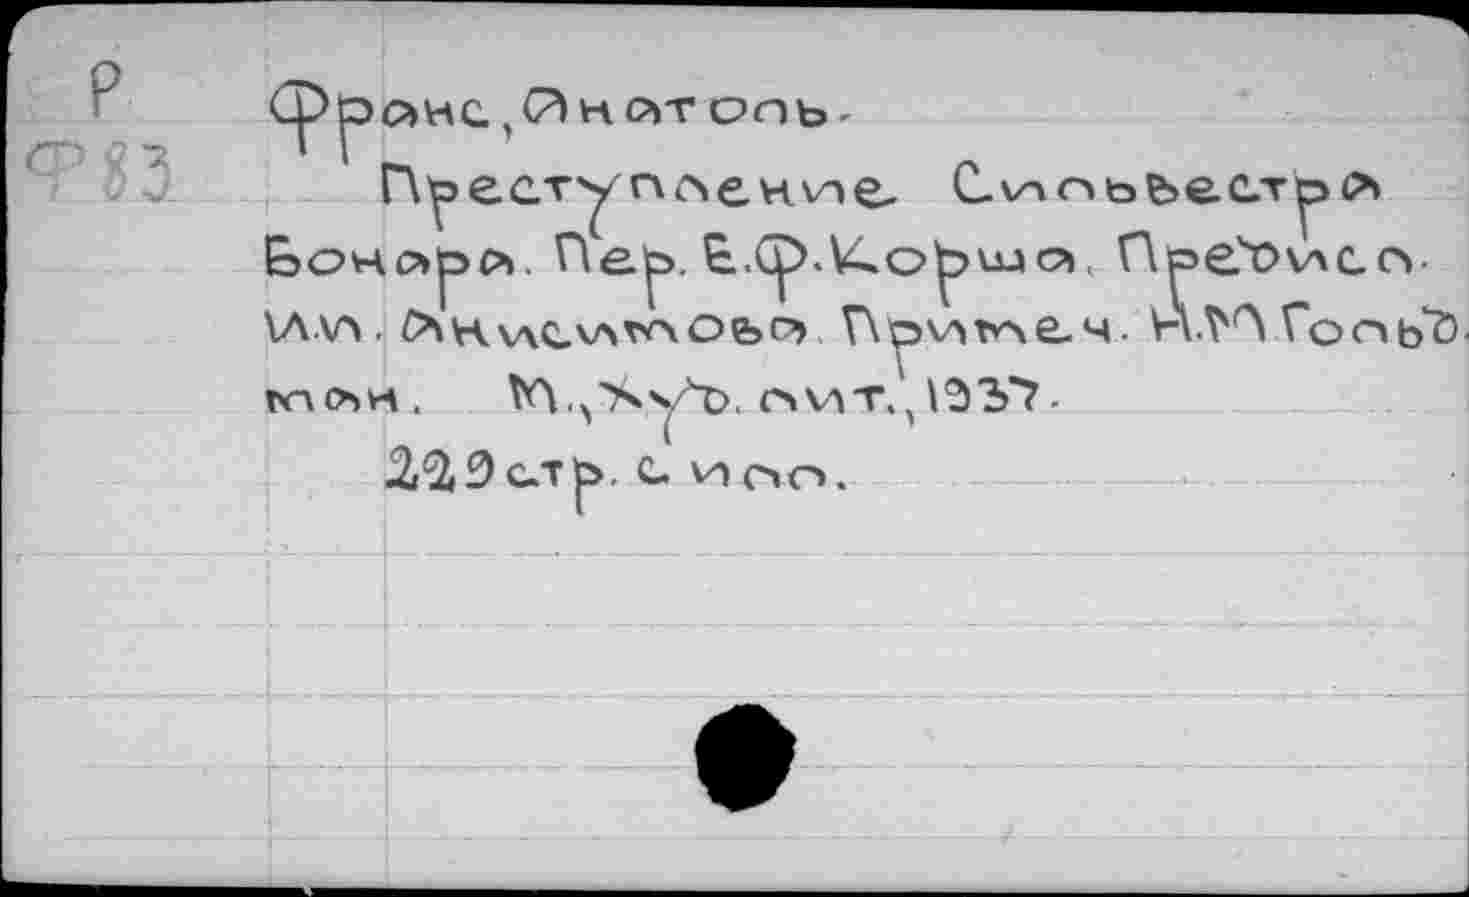 Р
Ф83
Франс, Анатоль.
Преступление Сильвестра
Бонара. Пер. Е.Ф.Корша. Предисл.
И.И. Анисимова. Примеч. Н.М Гольд-
ман. М., Худ. лит., 1937.
229 стр. с илл.